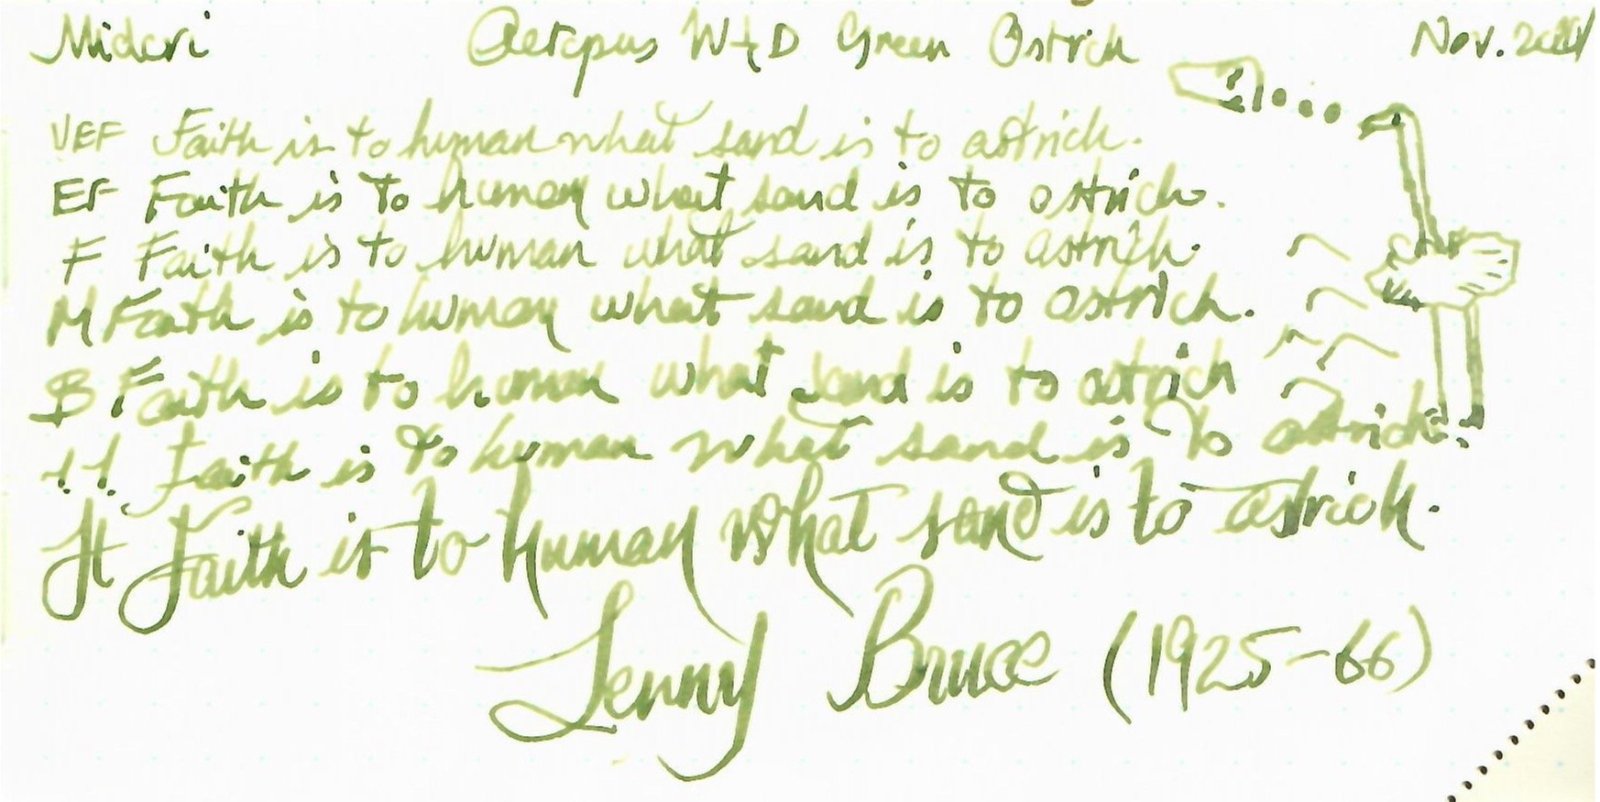 Midori Octopus W&D Green Ostrich Nov. 2021
VEF Faith is to human what sand is to ostrich.
EF Faith is to human what sand is to ostrich.
F Faith is to human what sand is to ostrich.
M Faith is to human what sand is to ostrich.
B Faith is to human what sand is to ostrich
1.1 Faith is to human what sand is to ostrich.
Jt Faith is to human what sand is to ostrich.
Lenny Bruce (1925-66)